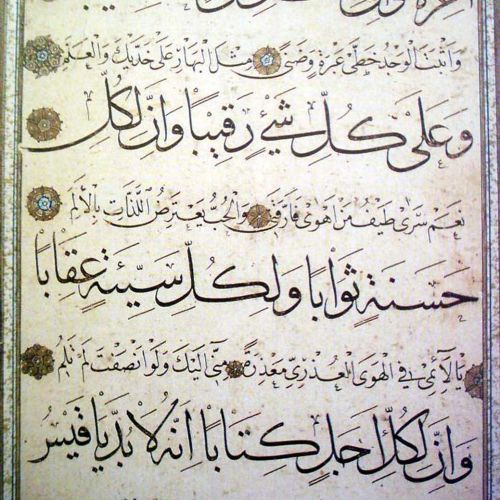 وَاثبَتَ الوَجْدُ خَطَّيْ عَبْرَةٍ وَضَنًى مِثْلَ البَهَارِ عَلَى خَدَّيْكَ وَالعَنَمِ
وَعَلَى كُلِّ شَيْءٍ رَقِيبًا وَاِنَّ لِكُلِّ
نَعَمْ سَرَى طَيْفُ مَنْ اَهْوَى فَاَرَّقَنِي وَالحُبُّ يَعْتَرِضُ اللَّذَّاتِ بِالاَلَمِ
حَسَنَةٍ ثَوَابًا وَلِكُلِّ سَيِّئَةٍ عِقَابًا
يَا لَائِمِي فِي الهَوَى العُذْرِيِّ مَعْذِرَةً مِنِّي اِلَيْكَ وَلَوْ اَنْصَفْتَ لَمْ تَلُمِ
وَاِنَّ لِكُلِّ اَجَلٍ كِتَابًا اِنَّهُ لَا بُدَّ يَا قَيْسُ